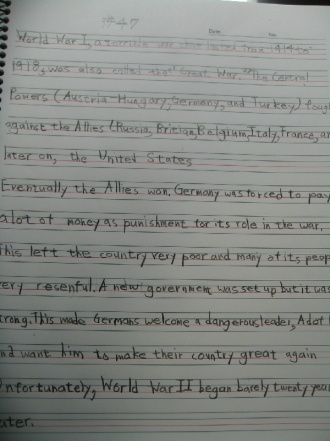 #47
Date No
World War I, a terrible war that lasted from 1914 to
1918, was also called the "Great War." The Central
Powers (Austria-Hungary, Germany, and Turkey) foug
against the Allies (Russia, Britian, Belgium, Italy, France, an
later on, the United States
Eventually the Allies won. Germany was forced to pay
a lot of money as punishment for its role in the war.
This left the country very poor and many of its peop
ery resenful. A new government was set up but it was
trong. This made Germans welcome a dangerous leader, Adol
nd want him to make their country great again
nfortunately, World War II began barely twenty year
ater.